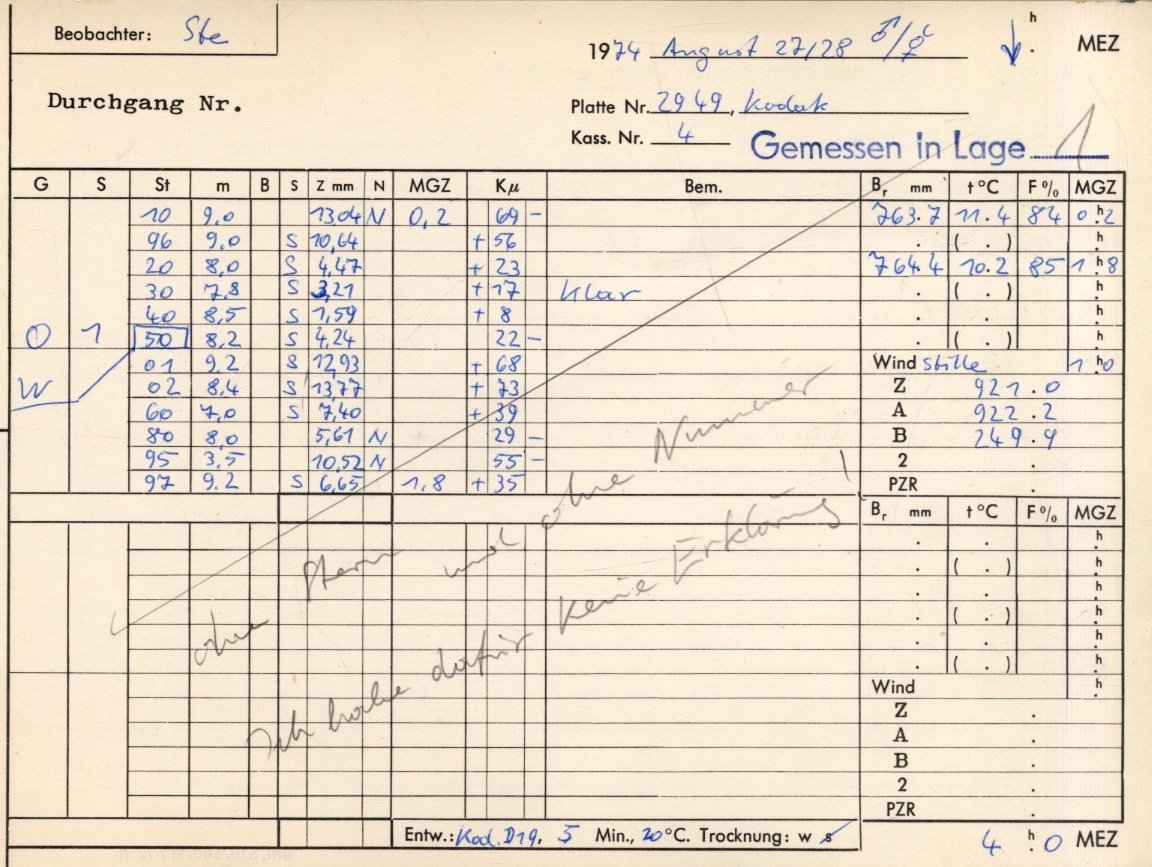 Beobachter: Ste
1974 August 27/28 ♂/☿ h . MEZ
Durchgang Nr.
Platte Nr. 2949, Kodak
Kass. Nr. 4
Gemessen in Lage 1
G S St m B S Z mm N MGZ Kμ Bem. Br mm t °C F % MGZ
10 9,0 13,04 N 0,2 69 - 763.7 11.4 84 0 h 2
96 9,0 S 10,64 + 56 . ( . ) h
20 8,0 S 4,47 + 23 764.4 10.2 85 1 h 8
30 7,8 S 3,21 + 17 Klar . ( . ) h
40 8,5 S 1,59 + 8 . . h
O 1 50 8,2 S 4,24 22 - . ( . ) h
01 9,2 S 12,93 + 68 Wind Stille 1 h 0
W 02 8,4 S 13,77 + 73 Z 921.0
60 7,0 S 7,40 + 39 A 922.2
80 8,0 5,61 N 29 - B 249.9
95 3,5 10,52 N 55 - 2 .
97 9,2 S 6,65 1,8 + 35 PZR
ohne Stern und ohne Nummer
Ich habe dafür keine Erklärung!
Br mm t °C F % MGZ
. . h
. ( . ) h
. . h
. ( . ) h
. . h
. ( . ) h
Wind h
Z .
A .
B .
2 .
PZR
Entw.: Kod. D19, 5 Min., 20 °C. Trocknung: w s
4 h 0 MEZ